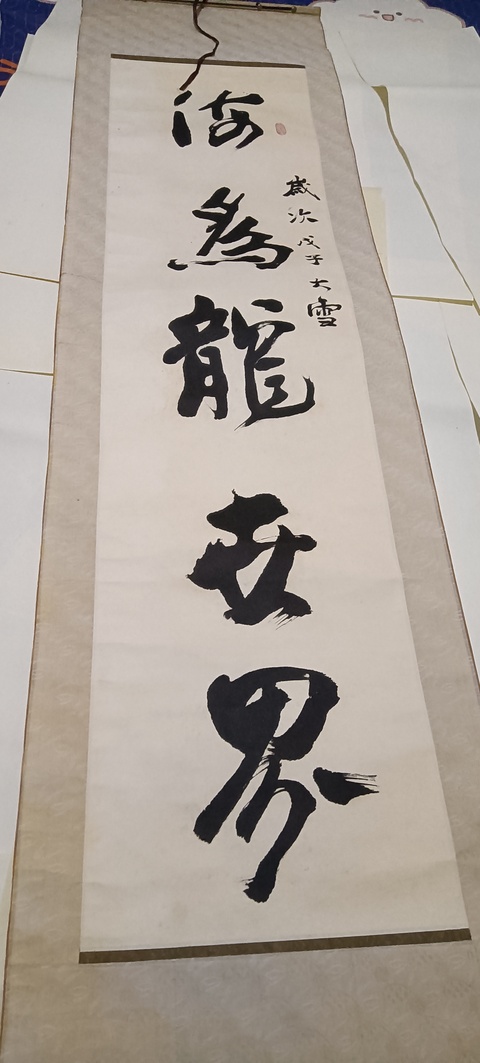 海為龍世界
歲次戊子大雪